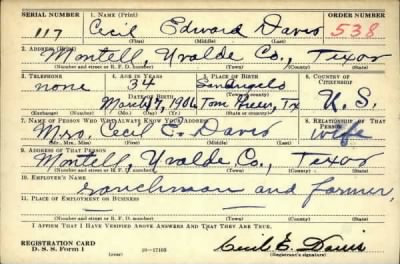 SERIAL NUMBER 1. NAME (Print) ORDER NUMBER
117 Cecil Edward Davis 538
(First) (Middle) (Last)
2. ADDRESS (Print)
Montell, Uvalde Co., Texas
(Number and street or R. F. D. number) (Town) (County) (State)
3. TELEPHONE 4. AGE IN YEARS 5. PLACE OF BIRTH 6. COUNTRY OF CITIZENSHIP
none 34 San Angelo
DATE OF BIRTH (Town or county)
March 17, 1906 Tom Green, Tx U.S.
(Exchange) (Number) (Mo.) (Day) (Yr.) (State or country)
7. NAME OF PERSON WHO WILL ALWAYS KNOW YOUR ADDRESS 8. RELATIONSHIP OF THAT PERSON
Mrs. Cecil E. Davis wife
(Mr., Mrs., Miss) (First) (Middle) (Last)
9. ADDRESS OF THAT PERSON
Montell, Uvalde Co., Texas
(Number and street or R. F. D. number) (Town) (County) (State)
10. EMPLOYER'S NAME
ranchman and farmer,
11. PLACE OF EMPLOYMENT OR BUSINESS
(Number and street or R. F. D. number) (Town) (County) (State)
I AFFIRM THAT I HAVE VERIFIED ABOVE ANSWERS AND THAT THEY ARE TRUE.
REGISTRATION CARD
D. S. S. Form 1 16—17105 Cecil E. Davis
(Registrant's signature)